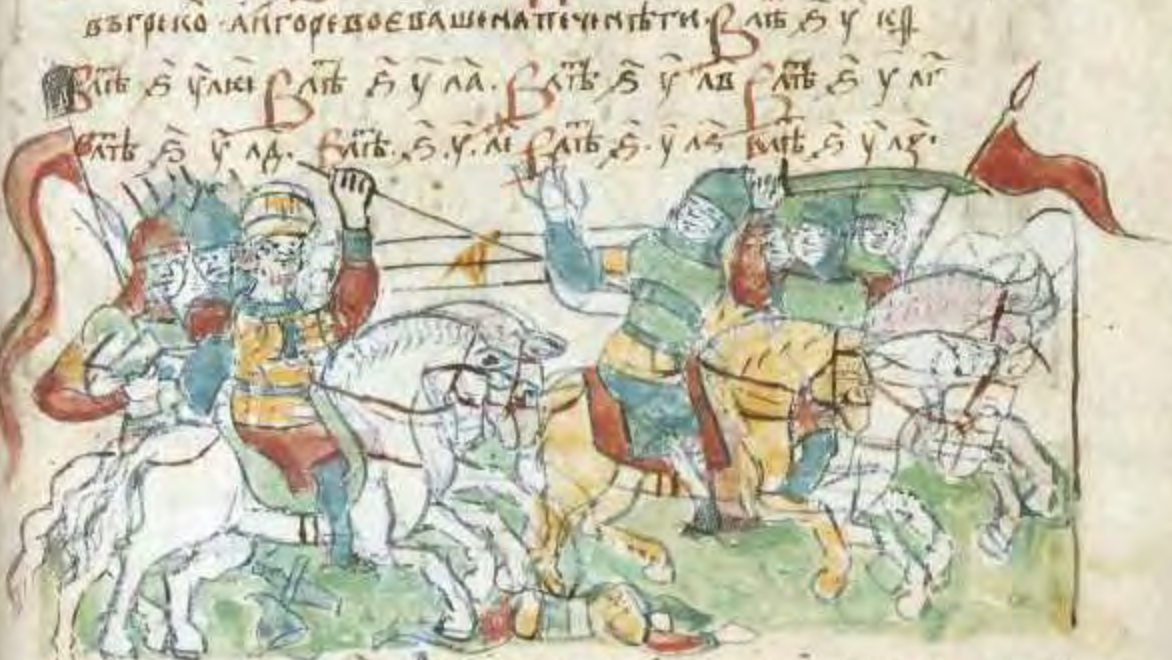 въгреко · аигоревоєвашенапеченѣги · Влѣ ѕ҃ у҃
Влѣт ѕ҃ у҃ Влѣт ѕ҃ у҃ ла҃ · Влѣт ѕ҃ у҃ лв҃ Влѣт ѕ҃ у҃ лг҃
Влѣт ѕ҃ у҃ лд҃ · Влѣт · ѕ҃ · у҃ · ле҃ Влѣт ѕ҃ · у҃ лѕ҃ Влѣт ѕ҃ у҃ лз҃ ·